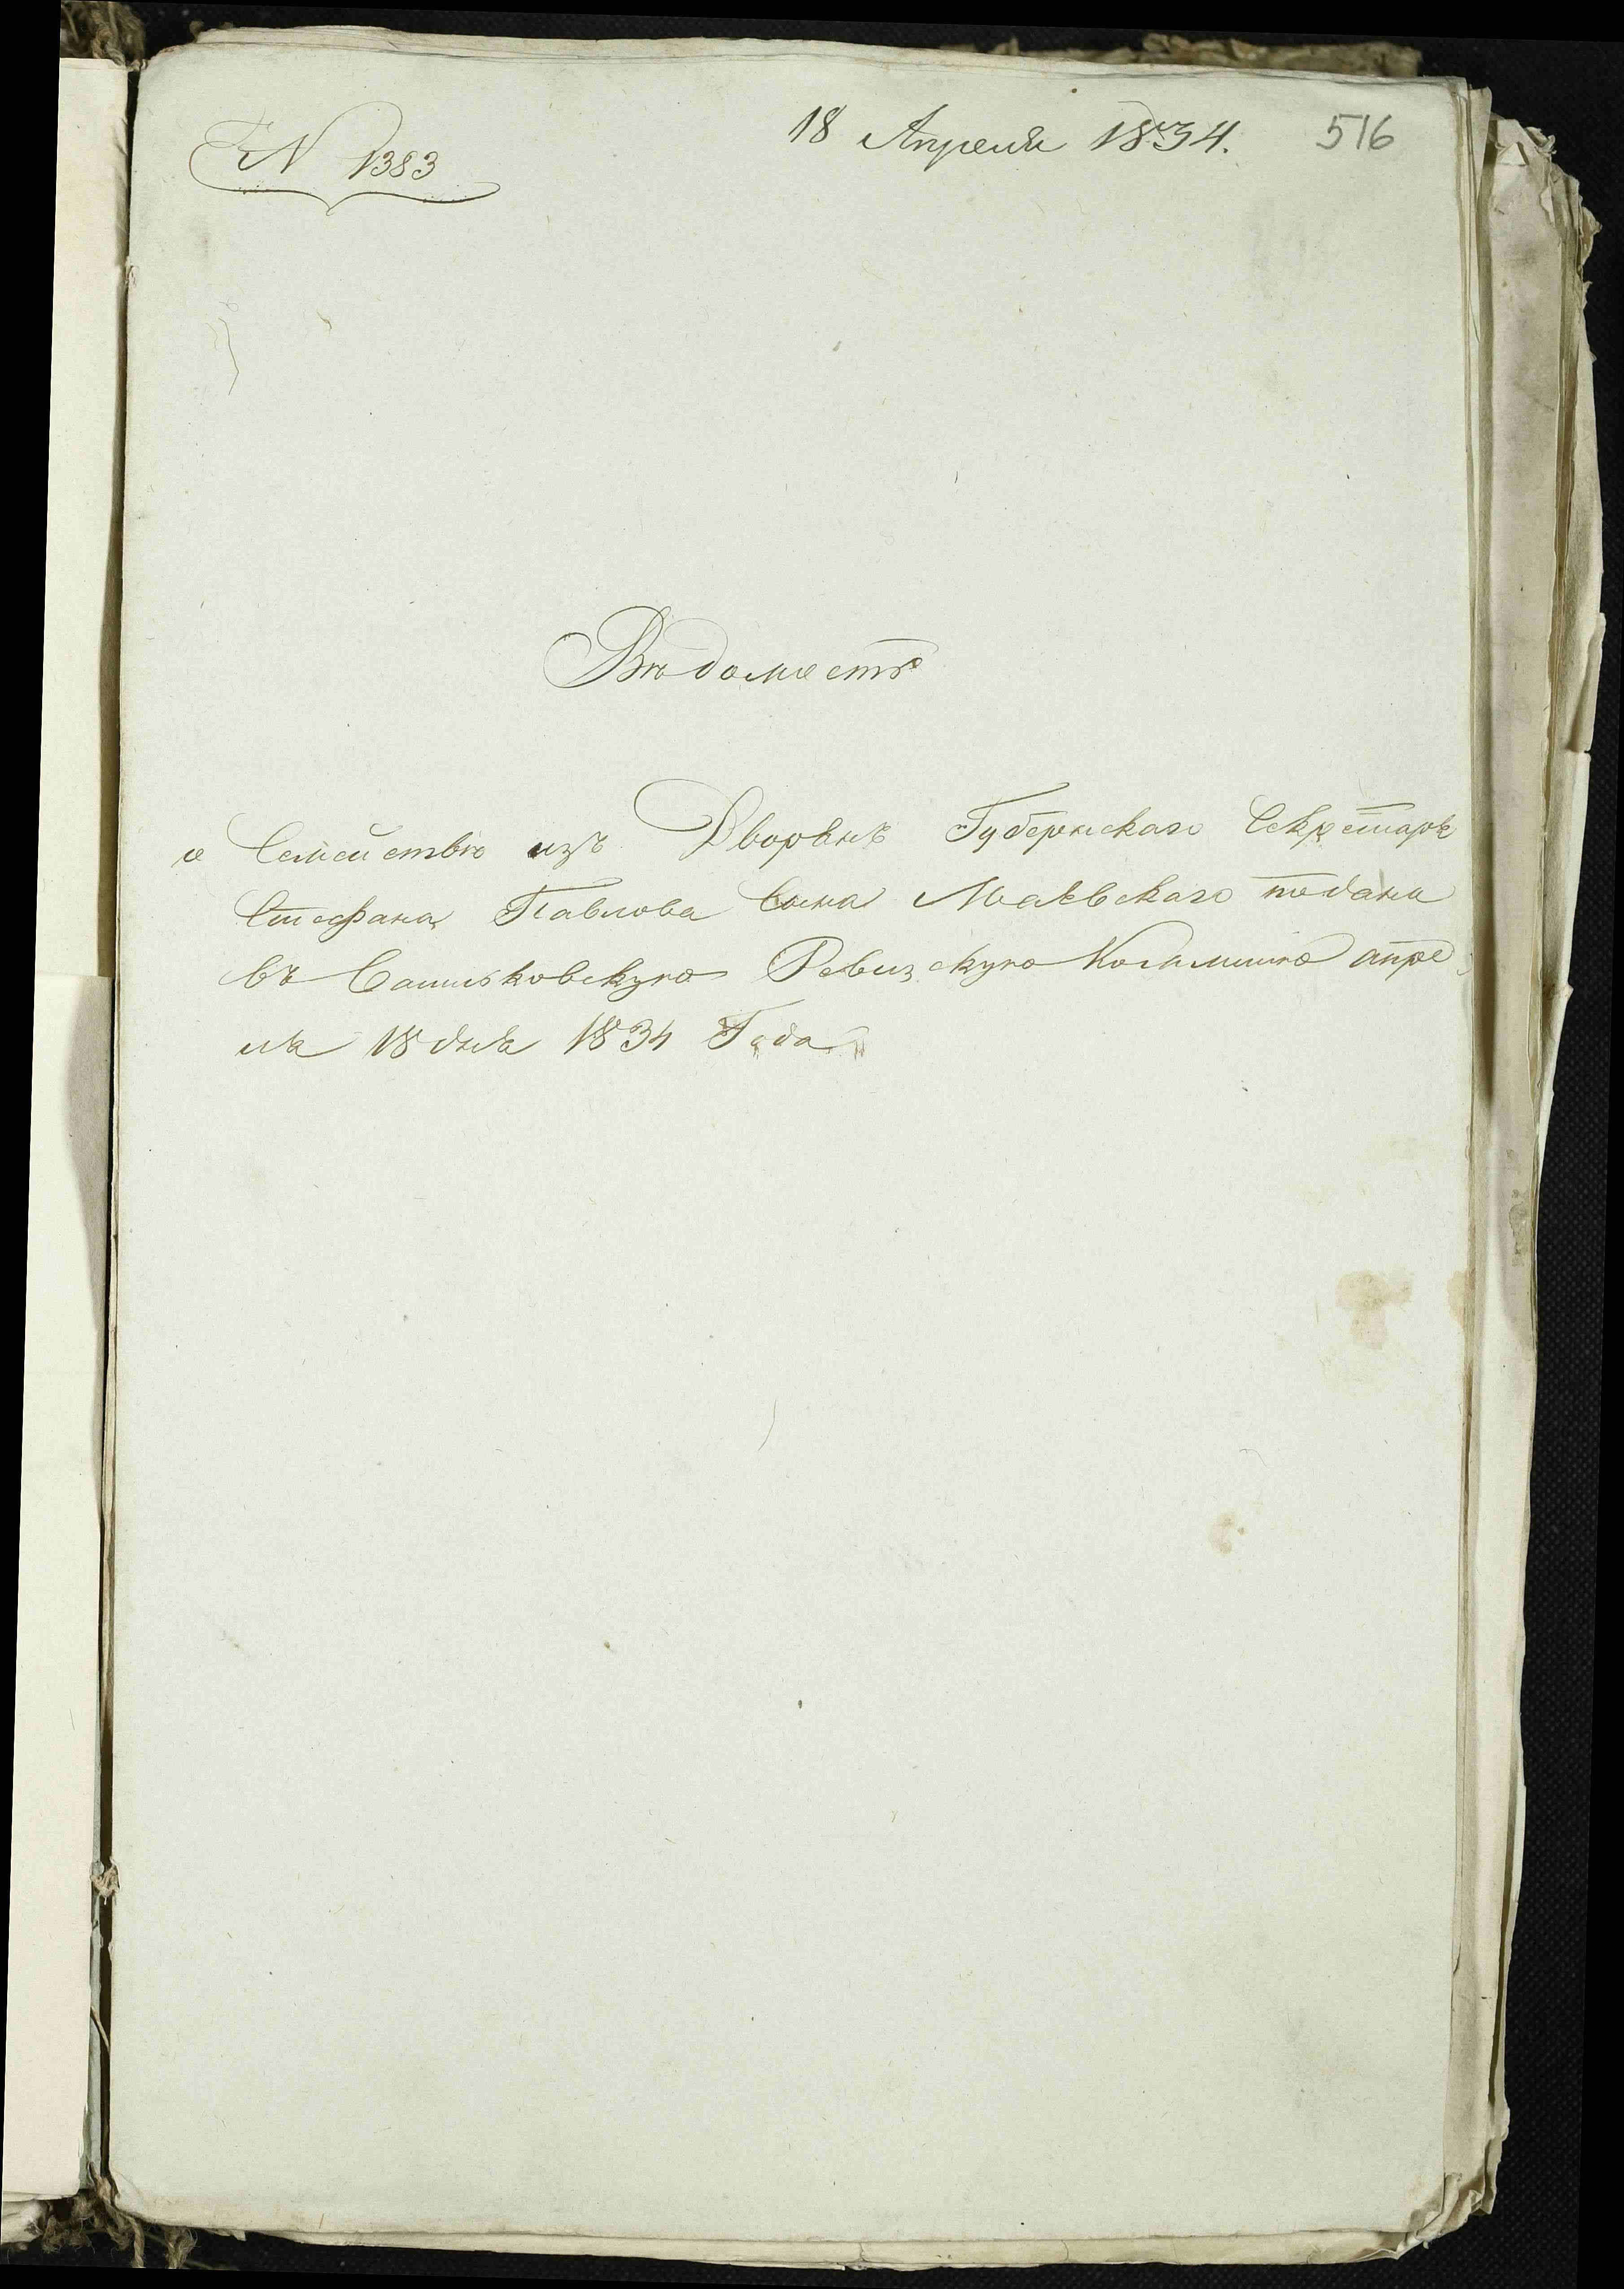 N 1383
18 Апреля 1834. 516
Вѣдомость
о Семействѣ изъ Дворянъ Губернскаго Секретаря
Стефана Павлова Сына Маевскаго подана
въ Васильковскую Ревизскую Коммисію апре
ля 18 дня 1834 Года